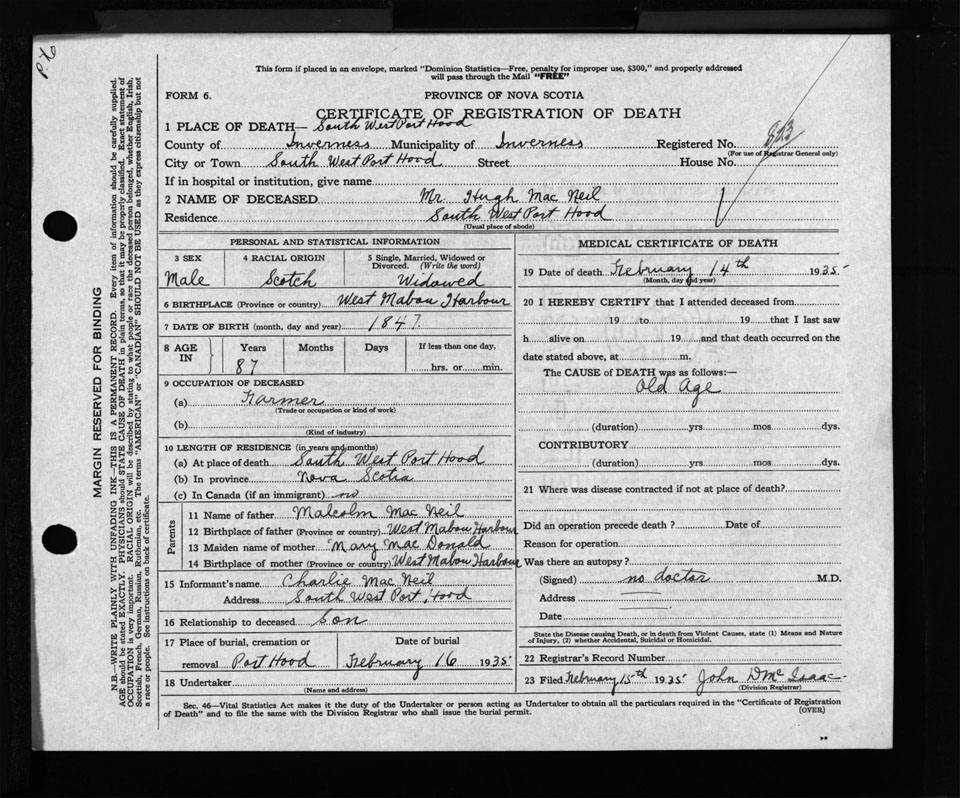 P.H.
This form if placed in an envelope, marked "Dominion Statistics—Free, penalty for improper use, $300," and properly addressed
will pass through the Mail "FREE"
FORM 6.
PROVINCE OF NOVA SCOTIA
CERTIFICATE OF REGISTRATION OF DEATH
1 PLACE OF DEATH— South West Port Hood
County of Inverness Municipality of Inverness Registered No. 823
(For use of Registrar General only)
City or Town South West Port Hood Street House No.
If in hospital or institution, give name
2 NAME OF DECEASED Mr. Hugh Mac Neil
Residence South West Port Hood
(Usual place of abode)
PERSONAL AND STATISTICAL INFORMATION
3 SEX 4 RACIAL ORIGIN 5 Single, Married, Widowed or
Divorced. (Write the word)
Male Scotch Widowed
6 BIRTHPLACE (Province or country) West Mabou Harbour
7 DATE OF BIRTH (month, day and year) 1847
8 AGE IN Years Months Days If less than one day,
87 hrs. or min.
9 OCCUPATION OF DECEASED
(a) Farmer
(Trade or occupation or kind of work)
(b)
(Kind of industry)
10 LENGTH OF RESIDENCE (in years and months)
(a) At place of death South West Port Hood
(b) In province Nova Scotia
(c) In Canada (if an immigrant) no
Parents
11 Name of father Malcolm Mac Neil
12 Birthplace of father (Province or country) West Mabou Harbour
13 Maiden name of mother Mary Mac Donald
14 Birthplace of mother (Province or country) West Mabou Harbour
15 Informant's name Charlie Mac Neil
Address South West Port Hood
16 Relationship to deceased Son
17 Place of burial, cremation or Date of burial
removal Port Hood February 16 1935
18 Undertaker
(Name and address)
MEDICAL CERTIFICATE OF DEATH
19 Date of death February 14th 1935
(Month, day and year)
20 I HEREBY CERTIFY that I attended deceased from
19 to 19 that I last saw
h alive on 19 and that death occurred on the
date stated above, at m.
The CAUSE of DEATH was as follows:—
Old Age
(duration) yrs mos dys.
CONTRIBUTORY
(duration) yrs. mos. dys.
21 Where was disease contracted if not at place of death?
Did an operation precede death? Date of
Reason for operation
Was there an autopsy?
(Signed) no doctor M.D.
Address
Date
State the Disease causing Death, or in death from Violent Causes, state (1) Means and Nature
of Injury, (2) whether Accidental, Suicidal or Homicidal.
22 Registrar's Record Number
23 Filed February 15th 1935 John D Mc Isaac
(Division Registrar)
Sec. 46—Vital Statistics Act makes it the duty of the Undertaker or person acting as Undertaker to obtain all the particulars required in the "Certificate of Registration
of Death" and to file the same with the Division Registrar who shall issue the burial permit.
(OVER)
MARGIN RESERVED FOR BINDING
N.B.—WRITE PLAINLY WITH UNFADING INK—THIS IS A PERMANENT RECORD. Every item of information should be carefully supplied.
AGE should be stated EXACTLY. PHYSICIANS should STATE CAUSE OF DEATH in plain terms, so that it may be properly classified. Exact statement of
OCCUPATION is very important. RACIAL ORIGIN will be described by stating to what people or race the deceased person belonged, whether English, Irish,
Scottish, French, German, Russian, Ruthenian, etc. The terms "AMERICAN" or "CANADIAN" SHOULD NOT BE USED as they express citizenship but not
a race or people. See instructions on back of certificate.